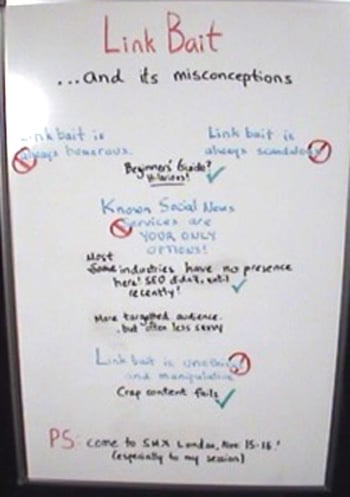 Link Bait
...and its misconceptions
Link bait is
always humorous.
Link bait is
always scandalous
Beginners' Guide?
Hilarious!
Known Social News
Services are
YOUR ONLY
OPTIONS!
Most
Some industries have no presence
here! SEO didn't, until
recently!
More targetted audience.
..but often less savvy
Link bait is unethical
and manipulative
Crap content fails
PS: come to SMX London, Nov. 15-16!
(especially to my session)